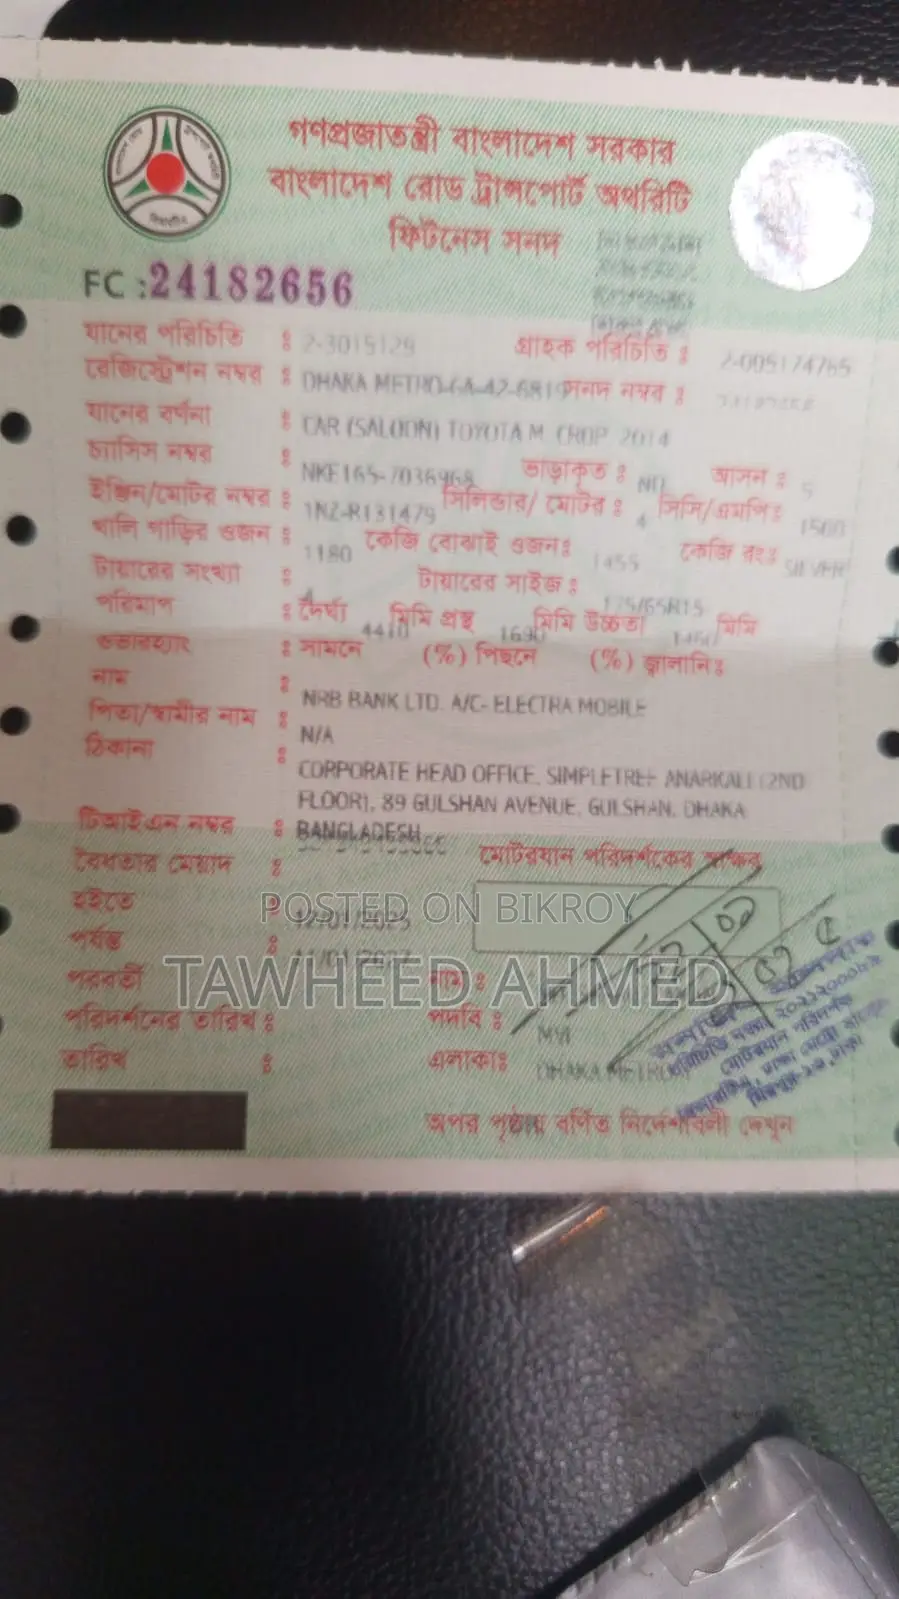 গণপ্রজাতন্ত্রী বাংলাদেশ সরকার
বাংলাদেশ রোড ট্রান্সপোর্ট অথরিটি
ফিটনেস সনদ
FC :24182656
যানের পরিচিতি : 2-3015129 গ্রাহক পরিচিতি : 2-005174765
রেজিস্ট্রেশন নম্বর : DHAKA METRO-GA-42-6819 সনদ নম্বর :
যানের বর্ণনা : CAR (SALOON) TOYOTA M. CROP. 2014
চ্যাসিস নম্বর : NKE165-7036968 ভাড়াকৃত : NO আসন : 5
ইঞ্জিন/মোটর নম্বর : 1NZ-R131479 সিলিন্ডার/ মোটর : 4 সিসি/এমপি: 1500
খালি গাড়ির ওজন : 1180 কেজি বোঝাই ওজন: 1455 কেজি রং: SILVER
টায়ারের সংখ্যা : 4 টায়ারের সাইজ : 175/65R15
পরিমাপ : দৈর্ঘ্য 4410 মিমি প্রস্থ 1690 মিমি উচ্চতা 1460 মিমি
ওভারহ্যাং : সামনে (%) পিছনে (%) জ্বালানি:
নাম : NRB BANK LTD. A/C- ELECTRA MOBILE
পিতা/স্বামীর নাম : N/A
ঠিকানা : CORPORATE HEAD OFFICE, SIMPLETREE ANARKALI (2ND
FLOOR), 89 GULSHAN AVENUE, GULSHAN, DHAKA
BANGLADESH
টিআইএন নম্বর :
বৈধতার মেয়াদ : মোটরযান পরিদর্শকের স্বাক্ষর
হইতে : 12/01/2025
পর্যন্ত : 11/01/2027
POSTED ON BIKROY
TAWHEED AHMED
পরবর্তী নাম :
পরিদর্শনের তারিখ : পদবি : MVI
তারিখ : এলাকা: DHAKA METRO
মোটরযান পরিদর্শক
অপর পৃষ্ঠায় বর্ণিত নির্দেশাবলী দেখুন